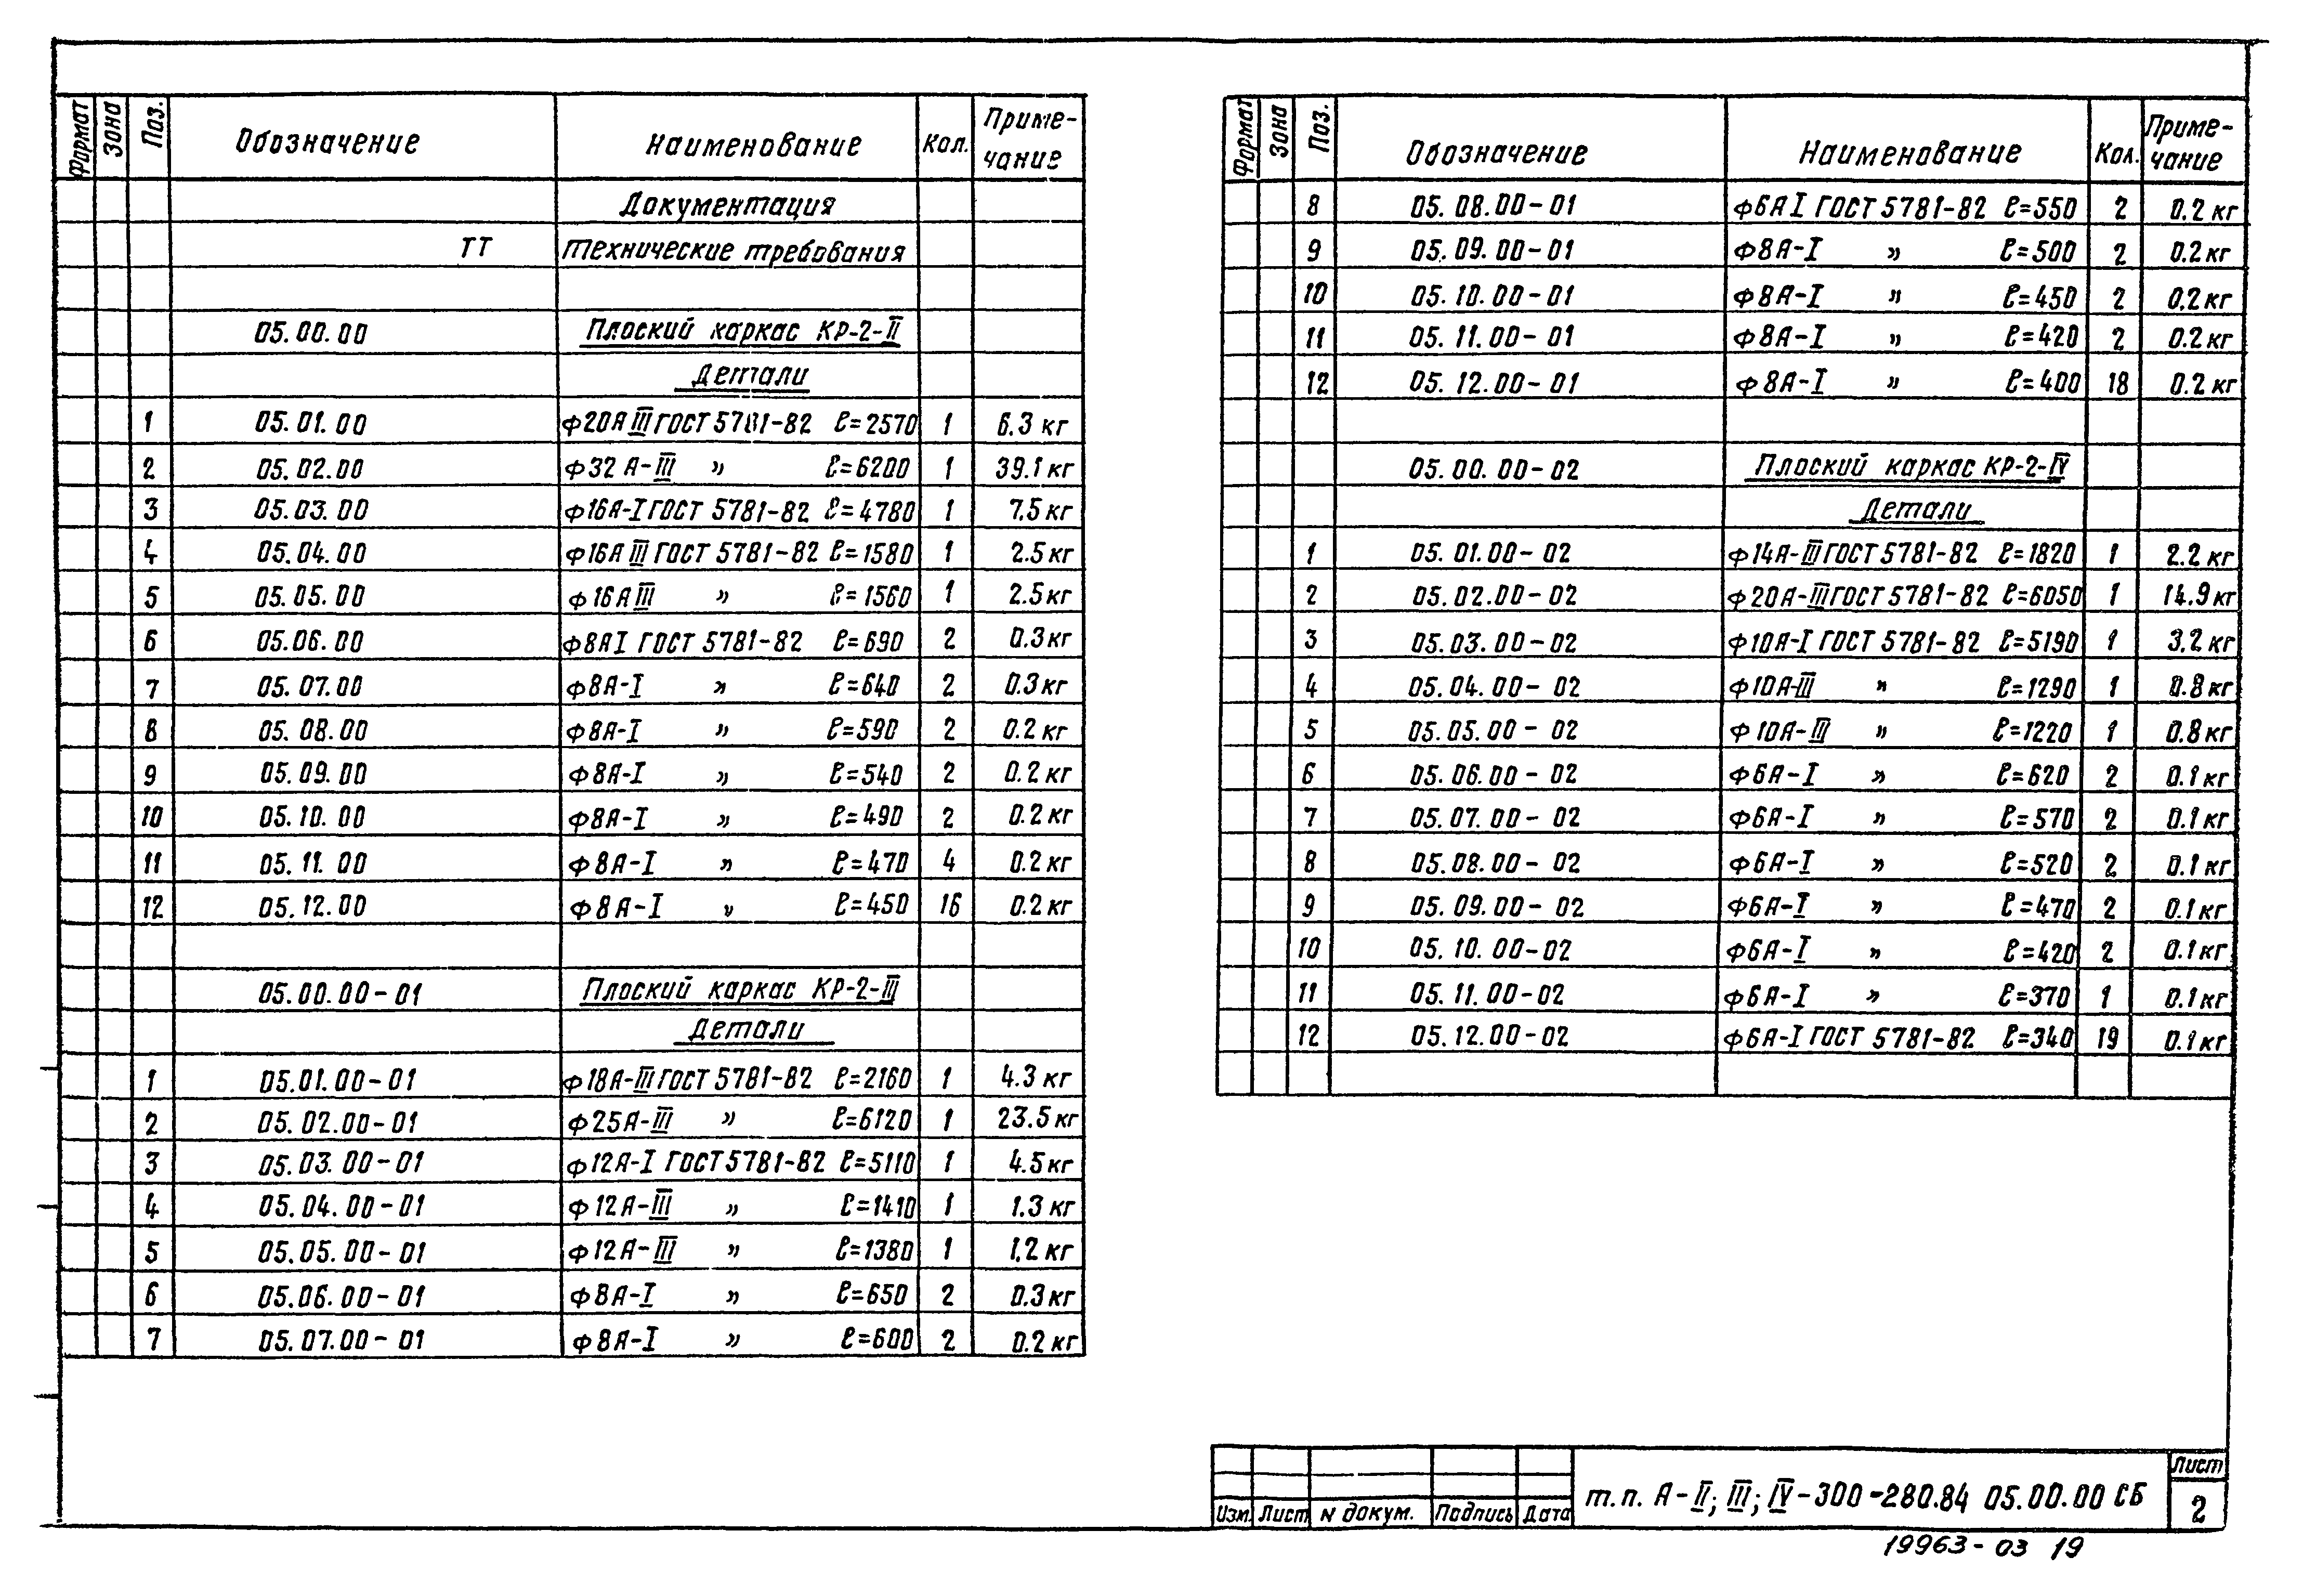 Формат Зона Поз. Обозначение Наименование Кол. Приме-
чание
Документация
ТТ Технические требования
05.00.00 Плоский каркас КР-2-II
Детали
1 05.01.00 ф20А III ГОСТ 5781-82 ℓ=2570 1 6.3 кг
2 05.02.00 ф32 А-III " ℓ=6200 1 39.1 кг
3 05.03.00 ф16А-I ГОСТ 5781-82 ℓ=4780 1 7.5 кг
4 05.04.00 ф16А III ГОСТ 5781-82 ℓ=1580 1 2.5 кг
5 05.05.00 ф16А III " ℓ=1560 1 2.5 кг
6 05.06.00 ф8АI ГОСТ 5781-82 ℓ=690 2 0.3 кг
7 05.07.00 ф8А-I " ℓ=640 2 0.3 кг
8 05.08.00 ф8А-I " ℓ=590 2 0.2 кг
9 05.09.00 ф8А-I " ℓ=540 2 0.2 кг
10 05.10.00 ф8А-I " ℓ=490 2 0.2 кг
11 05.11.00 ф8А-I " ℓ=470 4 0.2 кг
12 05.12.00 ф8А-I " ℓ=450 16 0.2 кг
05.00.00-01 Плоский каркас КР-2-III
Детали
1 05.01.00-01 ф18А-III ГОСТ 5781-82 ℓ=2160 1 4.3 кг
2 05.02.00-01 ф25А-III " ℓ=6120 1 23.5 кг
3 05.03.00-01 ф12А-I ГОСТ 5781-82 ℓ=5110 1 4.5 кг
4 05.04.00-01 ф12А-III " ℓ=1410 1 1.3 кг
5 05.05.00-01 ф12А-III " ℓ=1380 1 1.2 кг
6 05.06.00-01 ф8А-I " ℓ=650 2 0.3 кг
7 05.07.00-01 ф8А-I " ℓ=600 2 0.2 кг
Формат Зона Поз. Обозначение Наименование Кол. Приме-
чание
8 05.08.00-01 ф6А I ГОСТ 5781-82 ℓ=550 2 0.2 кг
9 05.09.00-01 ф8А-I " ℓ=500 2 0.2 кг
10 05.10.00-01 ф8А-I " ℓ=450 2 0.2 кг
11 05.11.00-01 ф8А-I " ℓ=420 2 0.2 кг
12 05.12.00-01 ф8А-I " ℓ=400 18 0.2 кг
05.00.00-02 Плоский каркас КР-2-IV
Детали
1 05.01.00-02 ф14А-III ГОСТ 5781-82 ℓ=1820 1 2.2 кг
2 05.02.00-02 ф20А-III ГОСТ 5781-82 ℓ=6050 1 14.9 кг
3 05.03.00-02 ф10А-I ГОСТ 5781-82 ℓ=5190 1 3.2 кг
4 05.04.00-02 ф10А-III " ℓ=1290 1 0.8 кг
5 05.05.00-02 ф10А-III " ℓ=1220 1 0.8 кг
6 05.06.00-02 ф6А-I " ℓ=620 2 0.1 кг
7 05.07.00-02 ф6А-I " ℓ=570 2 0.1 кг
8 05.08.00-02 ф6А-I " ℓ=520 2 0.1 кг
9 05.09.00-02 ф6А-I " ℓ=470 2 0.1 кг
10 05.10.00-02 ф6А-I " ℓ=420 2 0.1 кг
11 05.11.00-02 ф6А-I " ℓ=370 1 0.1 кг
12 05.12.00-02 ф6А-I ГОСТ 5781-82 ℓ=340 19 0.1 кг
Изм. Лист N докум. Подпись Дата
т.п. А-II; III; IV-300-280.84 05.00.00 СБ
Лист
2
19963-03 19